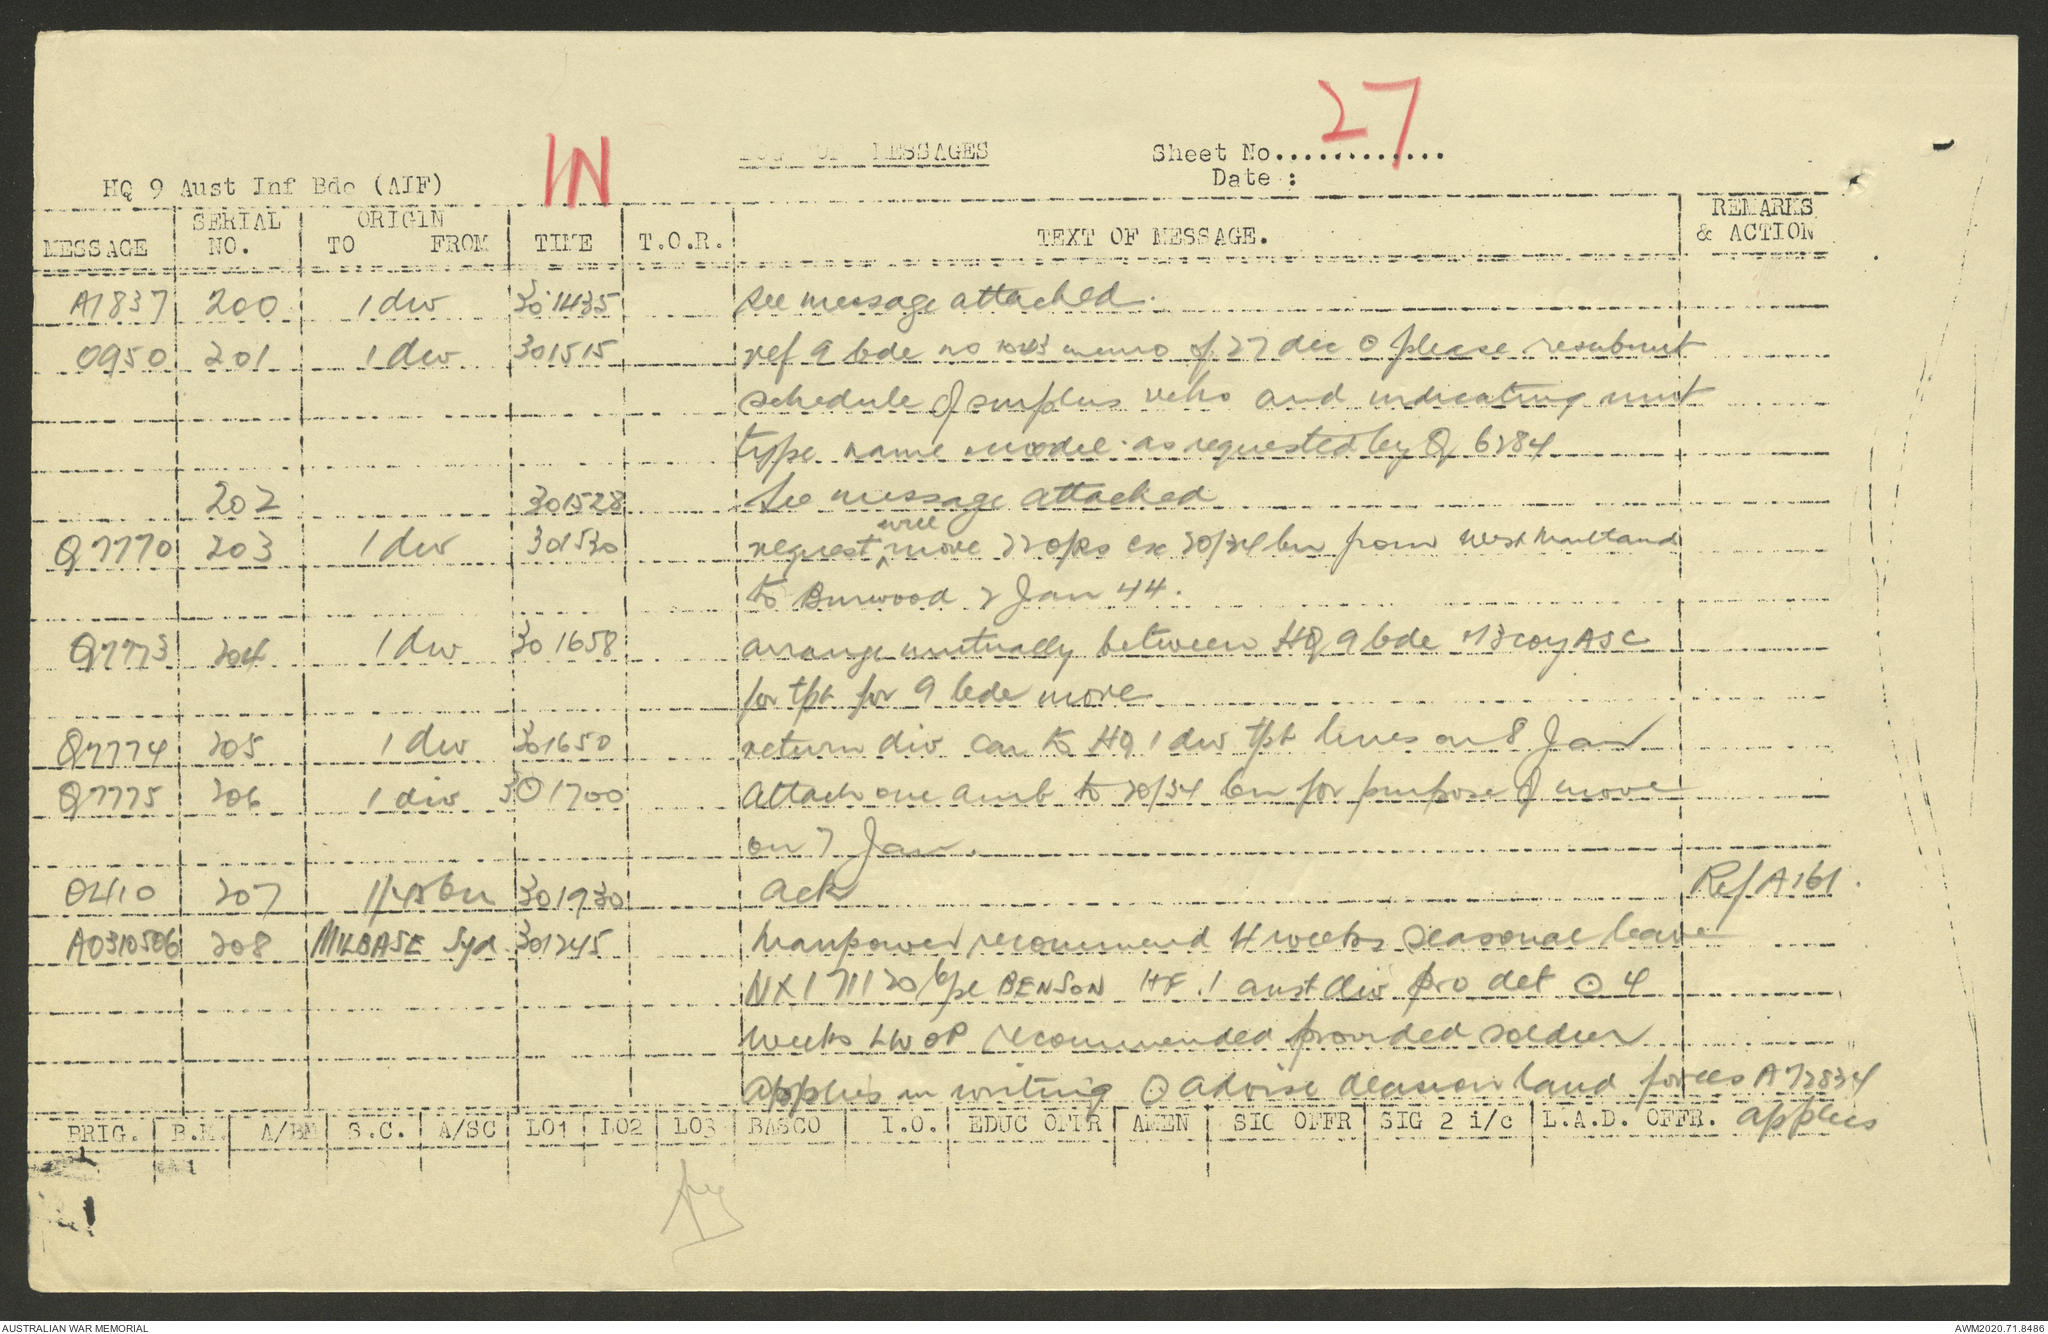 27
IN
LOG OF MESSAGES Sheet No.............
HQ 9 Aust Inf Bde (AIF) Date :
MESSAGE SERIAL NO. ORIGIN TO FROM TIME T.O.R. TEXT OF MESSAGE. REMARKS & ACTION
A1837 200 1 div 301435 see message attached.
O950 201 1 div 301515 ref 9 bde no memo of 27 dec O please resubmit
schedule of surplus vehs and indicating unit
type name model as requested by Q 6284
202 301528 See message attached
Q7770 203 1 div 301530 request will move 22 ORs ex 20/34 bn from West Maitland
to Burwood 2 Jan 44.
Q7773 204 1 div 301658 arrange mutually between HQ 9 bde & 3 coy ASC
for tpt for 9 bde move
Q7774 205 1 div 301650 return div car to HQ 1 div tpt lines on 8 Jan
Q7775 206 1 div 301700 attach one amb to 20/34 bn for purpose of move
on 7 Jan.
O410 207 1/45 bn 301930 ack Ref A161.
AO310506 208 MILBASE Syd 301245 Manpower recommend 4 weeks seasonal leave
NX171120 pte BENSON HF. 1 aust div pro det O 4
weeks LWOP recommended provided soldier
applies in writing O advise decision land forces A72834
applies
BRIG. B.M. A/BM S.C. A/SC LO1 LO2 LO3 BASCO I.O. EDUC OFFR AMEN SIG OFFR SIG 2 i/c L.A.D. OFFR.
AUSTRALIAN WAR MEMORIAL AWM2020.71.8486